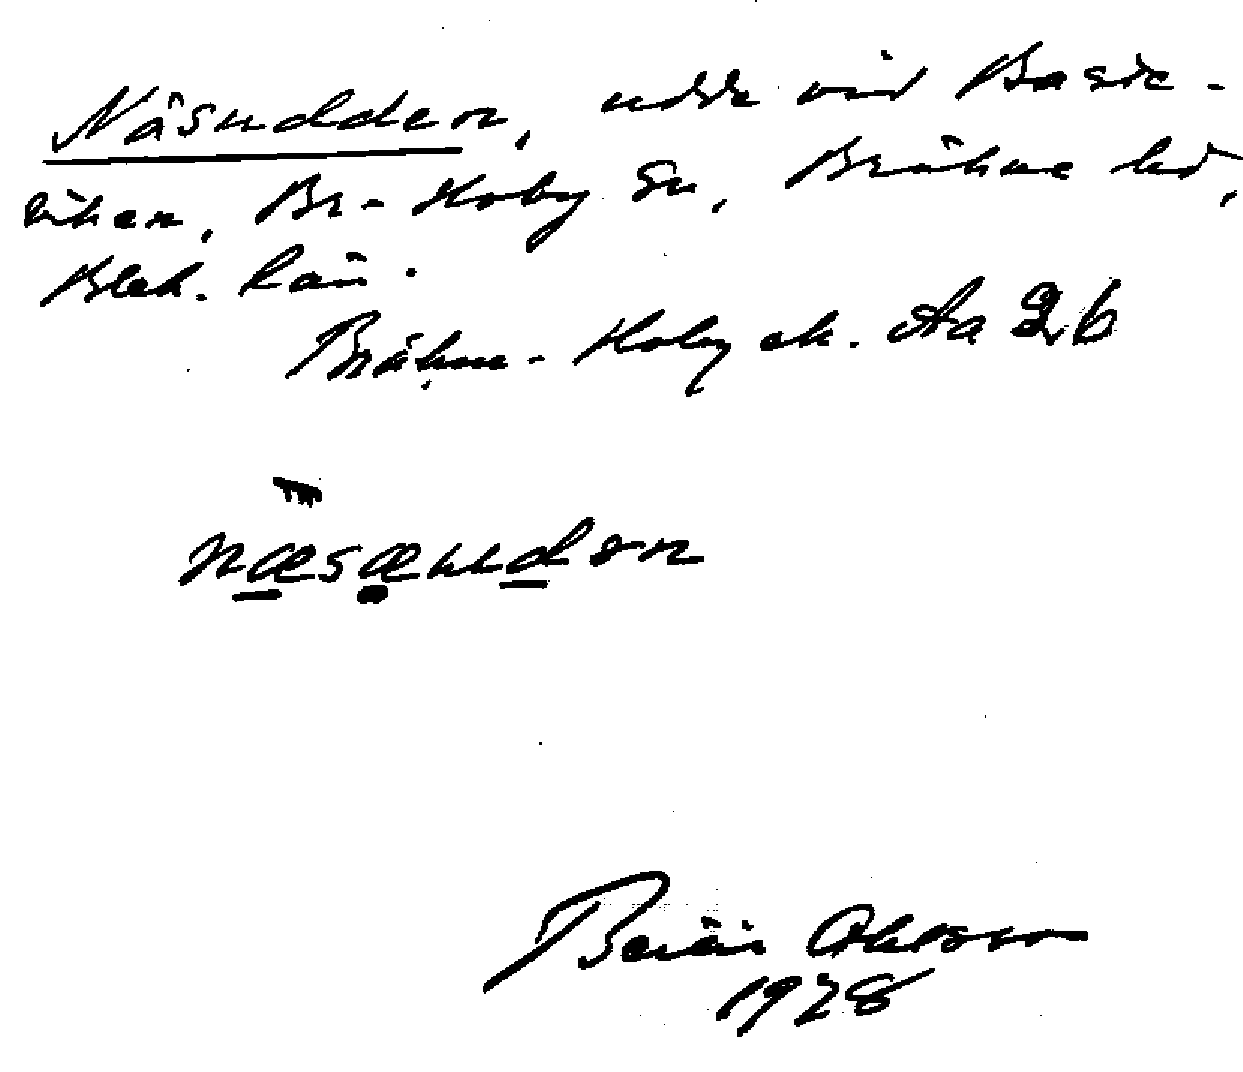 Näsudden, udde vid Baste-
viken, Br-Hoby Sn, Bräkne hd,
Blek. län.
Bräkne-Hoby ek. Aa 2b
næsæudən
Ohlsson
1928